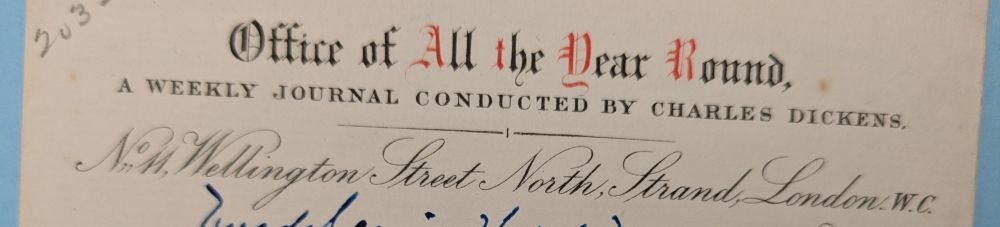 203
Office of All the Year Round,
A WEEKLY JOURNAL CONDUCTED BY CHARLES DICKENS.
No. 11, Wellington Street North, Strand, London. W.C.